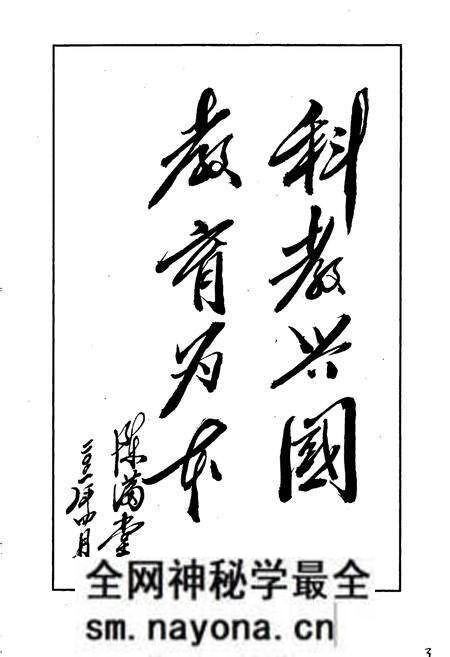 科教兴國
教育为本
陈满堂
二〇〇一年四月
全网神秘学最全
sm.nayona.cn
3